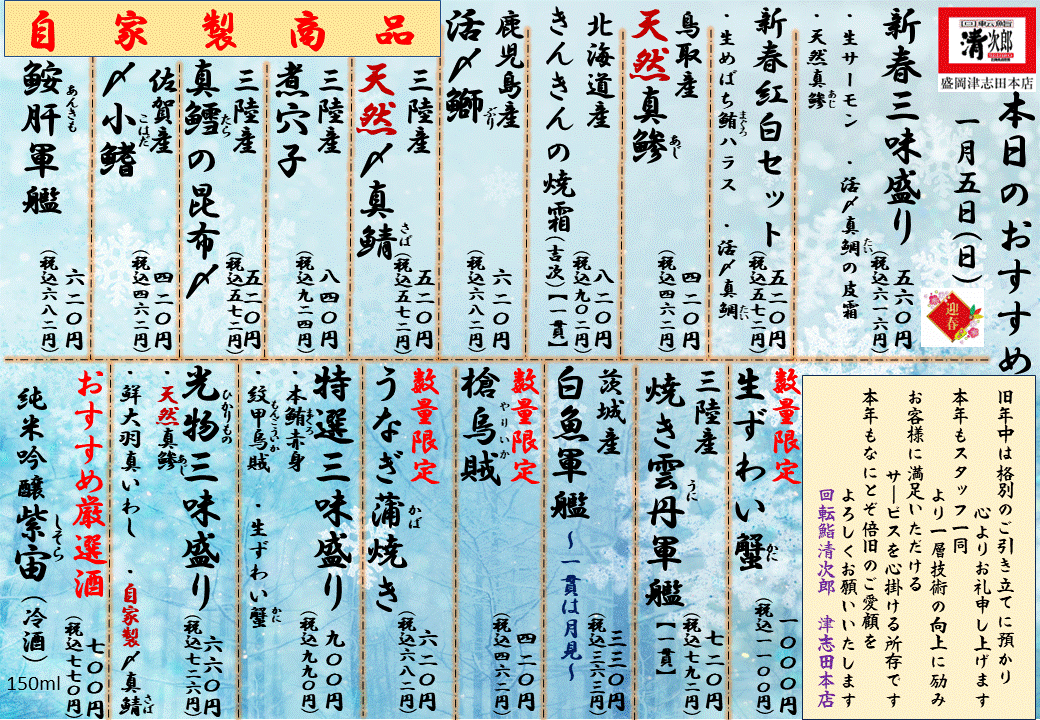 回転鮨
清次郎
盛岡津志田本店
本日のおすすめ
一月五日(日)
迎春
新春三味盛り
五六〇円
(税込六一六円)
・生サーモン ・活〆真鯛の皮霜
たい
・天然真鯵
あじ
新春紅白セット
五二〇円
(税込五七二円)
・生めばち鮪ハラス ・活〆真鯛
まぐろ
たい
鳥取産
天然真鯵
あじ
四二〇円
(税込四六二円)
北海道産
きんきんの焼霜(吉次)【一貫】
八二〇円
(税込九〇二円)
鹿児島産
活〆鰤
ぶり
六二〇円
(税込六八二円)
自家製商品
三陸産
天然〆真鯖
さば
五二〇円
(税込五七二円)
三陸産
煮穴子
八四〇円
(税込九二四円)
三陸産
真鱈の昆布〆
たら
五二〇円
(税込五七二円)
佐賀産
〆小鰭
こはだ
四二〇円
(税込四六二円)
鮟肝軍艦
あんきも
六二〇円
(税込六八二円)
旧年中は格別のご引き立てに預かり
心よりお礼申し上げます
本年もスタッフ一同
より一層技術の向上に励み
お客様に満足いただける
サービスを心掛ける所存です
本年もなにとぞ倍旧のご愛顧を
よろしくお願いいたします
回転鮨清次郎 津志田本店
数量限定
生ずわい蟹
かに
一〇〇〇円
(税込一一〇〇円)
三陸産
焼き雲丹軍艦【一貫】
うに
七二〇円
(税込七九二円)
茨城産
白魚軍艦
~一貫は月見~
三三〇円
(税込三六三円)
数量限定
槍烏賊
やりいか
四二〇円
(税込四六二円)
数量限定
うなぎ蒲焼き
かば
六二〇円
(税込六八二円)
特選三味盛り
九〇〇円
(税込九九〇円)
・本鮪赤身 ・生ずわい蟹
まぐろ
かに
・紋甲烏賊
もんこういか
光物三味盛り
ひかりもの
六六〇円
(税込七二六円)
・天然真鯵
あじ
・鮮大羽真いわし ・自家製〆真鯖
さば
おすすめ厳選酒
純米吟醸紫宙(冷酒)
しそら
150ml
七〇〇円
(税込七七〇円)